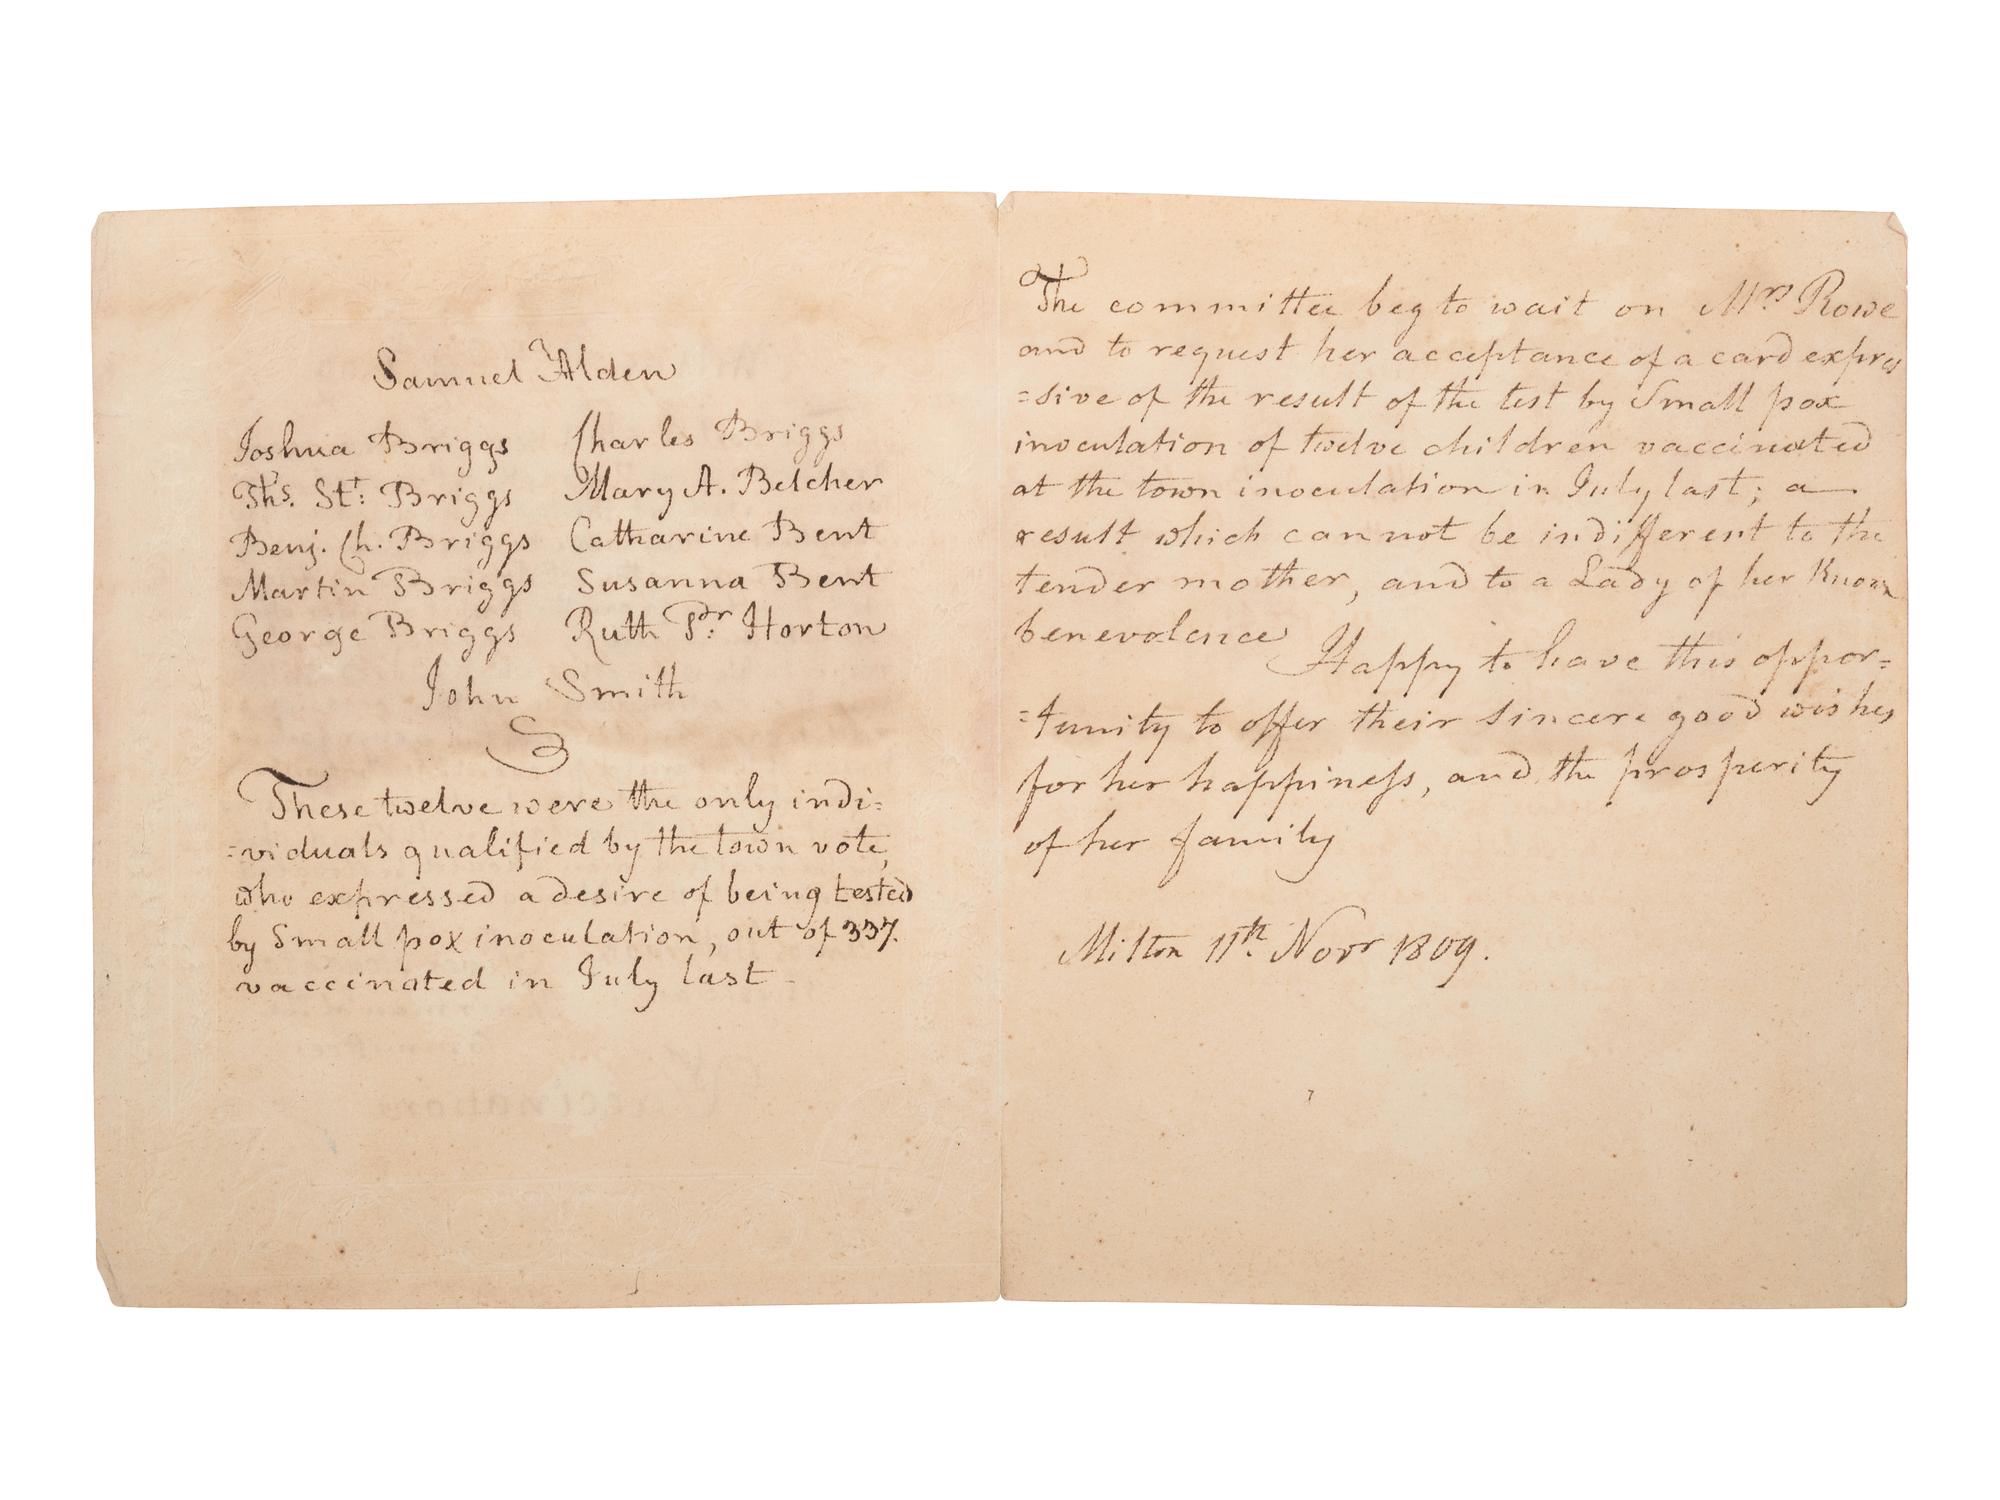 Samuel Alden
Joshua Briggs Charles Briggs
Ths. St: Briggs Mary A. Belcher
Benj. Ch. Briggs Catharine Bent
Martin Briggs Susanna Bent
George Briggs Ruth Pr: Horton
John Smith
These twelve were the only indi=
=viduals qualified by the town vote,
who expressed a desire of being tested
by Small pox inoculation, out of 337.
vaccinated in July last
The committee beg to wait on Mrs Rowe
and to request her acceptance of a card expres
=sive of the result of the test by Small pox
inoculation of twelve children vaccinated
at the town inoculation in July last; a
result which can not be indifferent to the
tender mother, and to a Lady of her known
benevolence
Happy to have this oppor=
=tunity to offer their sincere good wishes
for her happiness, and the prosperity
of her family
Milton 11th. Novr 1809.